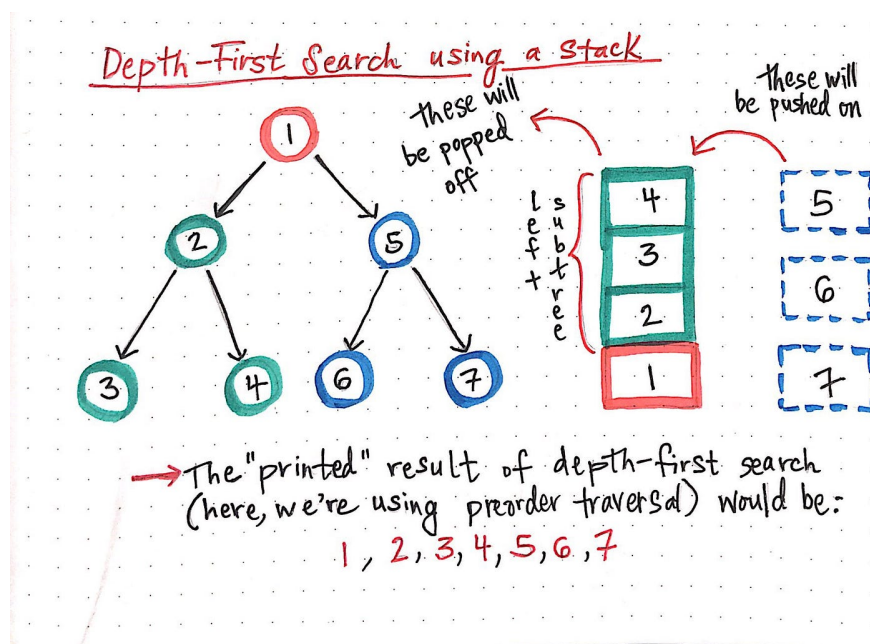 Depth-First Search using a stack
these will
be popped
off
these will
be pushed on
1
2
5
3
4
6
7
left
subtree
4
3
2
1
5
6
7
The "printed" result of depth-first search
(here, we're using preorder traversal) would be:
1, 2, 3, 4, 5, 6, 7